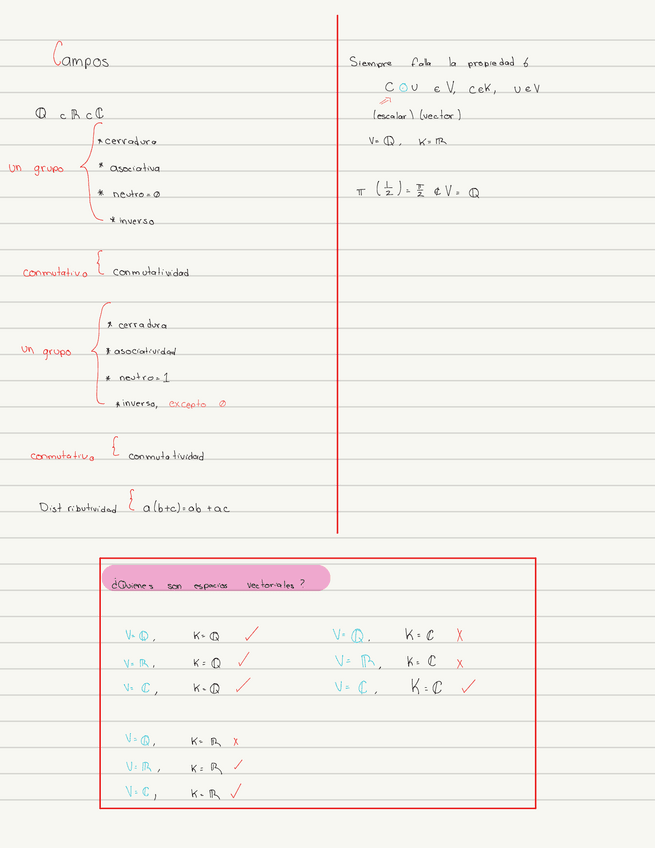 Campos
ℚ ⊂ ℝ ⊂ ℂ
un grupo
* cerradura
* asociativa
* neutro = 0
* inverso
conmutativo { conmutatividad
un grupo
* cerradura
* asociatividad
* neutro = 1
* inverso, excepto 0
conmutativo { conmutatividad
Distributividad { a(b+c) = ab + ac
Siempre falla la propiedad 6
C ⊙ U ∈ V, c∈K, u∈V
(escalar) (vector)
V = ℚ, K = ℝ
π (1/2) = π/2 ∉ V = ℚ
¿Quienes son espacios vectoriales?
V = ℚ, K = ℚ ✓
V = ℝ, K = ℚ ✓
V = ℂ, K = ℚ ✓
V = ℚ, K = ℂ X
V = ℝ, K = ℂ X
V = ℂ, K = ℂ ✓
V = ℚ, K = ℝ x
V = ℝ, K = ℝ ✓
V = ℂ, K = ℝ ✓